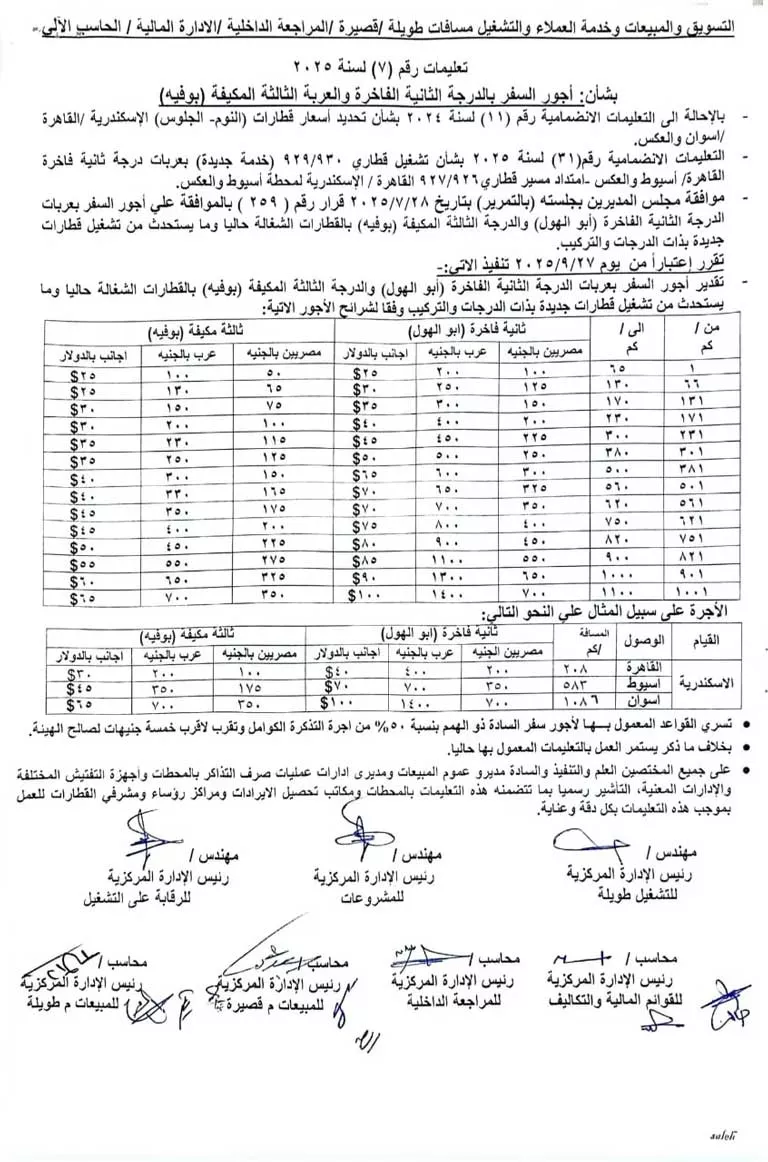 التسويق والمبيعات وخدمة العملاء والتشغيل مسافات طويلة /قصيرة /المراجعة الداخلية /الادارة المالية / الحاسب الآلي
تعليمات رقم (٧) لسنة ٢٠٢٥
بشأن: أجور السفر بالدرجة الثانية الفاخرة والعربة الثالثة المكيفة (بوفيه)
- بالإحالة الى التعليمات الانضمامية رقم (١١) لسنة ٢٠٢٤ بشأن تحديد أسعار قطارات (النوم- الجلوس) الإسكندرية /القاهرة
/اسوان والعكس.
- التعليمات الانضمامية رقم(٣١) لسنة ٢٠٢٥ بشأن تشغيل قطاري ٩٢٩/٩٣٠ (خدمة جديدة) بعربات درجة ثانية فاخرة
القاهرة/ أسيوط والعكس -امتداد مسير قطاري ٩٢٧/٩٢٦ القاهرة / الإسكندرية لمحطة أسيوط والعكس.
- موافقة مجلس المديرين بجلسته (بالتمرير) بتاريخ ٢٠٢٥/٧/٢٨ قرار رقم ( ٢٥٩ ) بالموافقة علي أجور السفر بعربات
الدرجة الثانية الفاخرة (أبو الهول) والدرجة الثالثة المكيفة (بوفيه) بالقطارات الشغالة حاليا وما يستحدث من تشغيل قطارات
جديدة بذات الدرجات والتركيب.
تقرر إعتباراً من يوم ٢٠٢٥/٩/٢٧ تنفيذ الاتي:-
- تقدير أجور السفر بعربات الدرجة الثانية الفاخرة (أبو الهول) والدرجة الثالثة المكيفة (بوفيه) بالقطارات الشغالة حاليا وما
يستحدث من تشغيل قطارات جديدة بذات الدرجات والتركيب وفقا لشرائح الأجور الاتية:
من / كم الى / كم ثانية فاخرة (ابو الهول) ثالثة مكيفة (بوفيه)
مصريين بالجنيه عرب بالجنيه اجانب بالدولار مصريين بالجنيه عرب بالجنيه اجانب بالدولار
١ ٦٥ ١٠٠ ٢٠٠ ٢٥$ ٥٠ ١٠٠ ٢٥$
٦٦ ١٣٠ ١٢٥ ٢٥٠ ٣٠$ ٦٥ ١٣٠ ٢٥$
١٣١ ١٧٠ ١٥٠ ٣٠٠ ٣٥$ ٧٥ ١٥٠ ٣٠$
١٧١ ٢٣٠ ٢٠٠ ٤٠٠ ٤٠$ ١٠٠ ٢٠٠ ٣٠$
٢٣١ ٣٠٠ ٢٢٥ ٤٥٠ ٤٥$ ١١٥ ٢٣٠ ٣٥$
٣٠١ ٣٨٠ ٢٥٠ ٥٠٠ ٥٠$ ١٢٥ ٢٥٠ ٣٥$
٣٨١ ٥٠٠ ٣٠٠ ٦٠٠ ٦٥$ ١٥٠ ٣٠٠ ٤٠$
٥٠١ ٥٦٠ ٣٢٥ ٦٥٠ ٧٠$ ١٦٥ ٣٣٠ ٤٠$
٥٦١ ٦٢٠ ٣٥٠ ٧٠٠ ٧٠$ ١٧٥ ٣٥٠ ٤٥$
٦٢١ ٧٥٠ ٤٠٠ ٨٠٠ ٧٥$ ٢٠٠ ٤٠٠ ٤٥$
٧٥١ ٨٢٠ ٤٥٠ ٩٠٠ ٨٠$ ٢٢٥ ٤٥٠ ٥٠$
٨٢١ ٩٠٠ ٥٥٠ ١١٠٠ ٨٥$ ٢٧٥ ٥٥٠ ٥٥$
٩٠١ ١٠٠٠ ٦٥٠ ١٣٠٠ ٩٠$ ٣٢٥ ٦٥٠ ٦٠$
١٠٠١ ١١٠٠ ٧٠٠ ١٤٠٠ ١٠٠$ ٣٥٠ ٧٠٠ ٦٥$
الأجرة على سبيل المثال علي النحو التالي:
القيام الوصول المسافة /كم ثانية فاخرة (ابو الهول) ثالثة مكيفة (بوفيه)
مصريين الجنيه عرب بالجنيه اجانب بالدولار مصريين بالجنيه عرب بالجنيه اجانب بالدولار
الاسكندرية القاهرة ٢٠٨ ٢٠٠ ٤٠٠ ٤٠$ ١٠٠ ٢٠٠ ٣٠$
اسيوط ٥٨٣ ٣٥٠ ٧٠٠ ٧٠$ ١٧٥ ٣٥٠ ٤٥$
اسوان ١٠٨٦ ٧٠٠ ١٤٠٠ ١٠٠$ ٣٥٠ ٧٠٠ ٦٥$
• تسري القواعد المعمول بـــها لأجور سفر السادة ذو الهمم بنسبة ٥٠% من اجرة التذكرة الكوامل وتقرب لاقرب خمسة جنيهات لصالح الهيئة.
• بخلاف ما ذكر يستمر العمل بالتعليمات المعمول بها حاليا.
• على جميع المختصين العلم والتنفيذ والسادة مديرو عموم المبيعات ومديرى ادارات عمليات صرف التذاكر بالمحطات وأجهزة التفتيش المختلفة
والإدارات المعنية، التأشير رسميا بما تتضمنه هذه التعليمات بالمحطات ومكاتب تحصيل الايرادات ومراكز رؤساء ومشرفي القطارات للعمل
بموجب هذه التعليمات بكل دقة وعناية.
مهندس / مهندس / مهندس /
رئيس الإدارة المركزية رئيس الإدارة المركزية رئيس الإدارة المركزية
للتشغيل طويلة للمشروعات للرقابة على التشغيل
محاسب / محاسب / محاسب / محاسب /
رئيس الإدارة المركزية رئيس الإدارة المركزية رئيس الإدارة المركزية رئيس الإدارة المركزية
للقوائم المالية والتكاليف للمراجعة الداخلية للمبيعات م قصيرة للمبيعات م طويلة